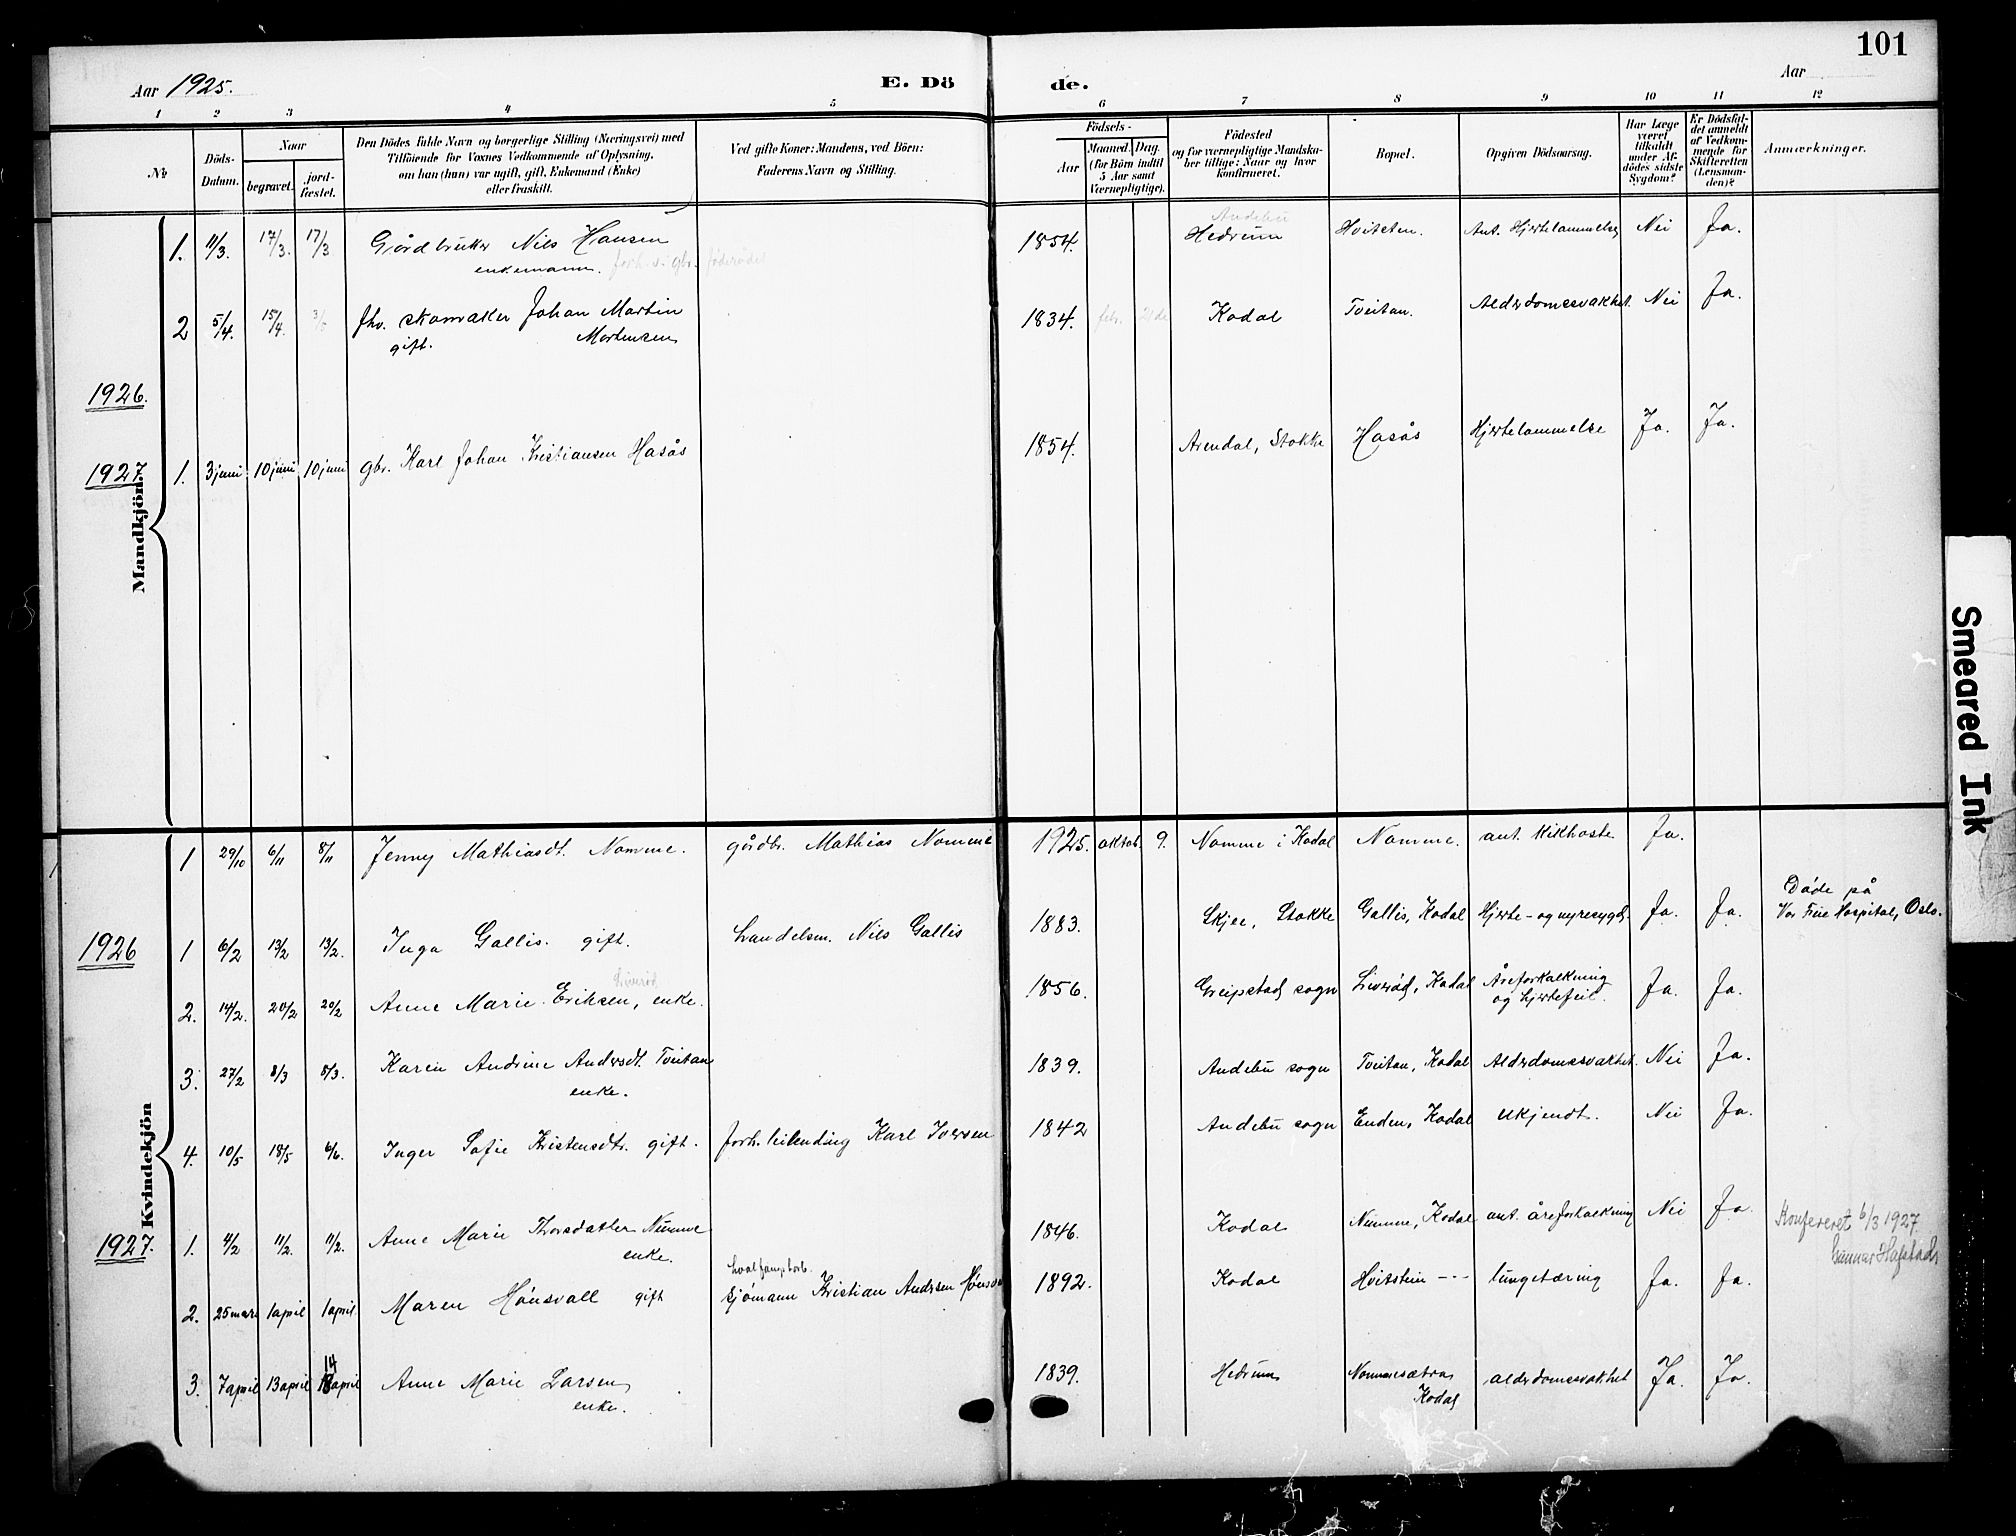 101
Aar 1925.
E. Dö de.
Aar
1 2 3 4 5 6 7 8 9 10 11 12
No
Döds-Datum.
Naar
begravet.
jordfæstet.
Den Dödes fulde Navn og borgerlige Stilling (Næringsvei) med
Tilföiende for Voxnes Vedkommende af Oplysning,
om han (hun) var ugift, gift, Enkemand (Enke)
eller fraskilt.
Ved gifte Koner: Mandens, ved Börn:
Faderens Navn og Stilling.
Födsels-
Aar
Maaned. Dag.
(for Börn indtil
5 Aar samt
Værnepligtige).
Födested
og for værnepligtige Mandska-
ber tillige: Naar og hvor
konfirmeret.
Bopæl.
Opgiven Dödsaarsag.
Har Læge
været
tilkaldt
under Af-
dödes sidste
Sygdom?
Er Dödsfal-
det anmeldt
af Vedkom-
mende for
Skifteretten
(Lensman-
den)?
Anmærkninger.
Mandkjön.
1. 11/3. 17/3. 17/3 Gårdbruker Nils Hansen 1854. Andebu Hedrum Hvitsten. Ant. Hjertelammelse Nei Ja.
enkemann. forh.v. gbr. föderådsm
2 5/4. 15/4. 3/5 fhv. skomaker Johan Martin 1834. febr. 21de Kodal Tveitan. Alderdomssvakhet. Nei Ja.
gift. Mortensen
1926.
1927. 1. 3 juni 10 juni 10 juni gbr. Karl Johan Kristiansen Hasås 1854. Arendal, Stokke Hasås Hjertelammelse Ja. Ja.
Kvindekjön
1 29/10 6/11 8/11 Jenny Mathiasdt. Nomme. gårdbr. Mathias Nomme 1925. oktob. 9. Nomme i Kodal Nomme. ant. kikhoste Ja.
1926 1 6/2 13/2 13/2. Inga Gallis. gift. handelsm. Nils Gallis 1883. Skjee, Stokke Gallis, Kodal Hjerte- og nyresygd. Ja. Ja. Döde på
Vor Frue Hospital, Oslo.
2. 14/2. 20/2 20/2 Anne Marie Eriksen, enke. Liverød 1856. Greipstad sogn Liverød, Kodal Åreforkalkning
og hjertefeil. Ja. Ja.
3. 27/2 8/3 8/3. Karen Andrine Andersdt. Tveitan 1839. Andebu sogn Tveitan, Kodal Alderdomssvakhet. Nei Ja.
enke.
4. 10/5 18/5 6/6. Inger Sofie Kristensdtr. gift. forh. leilending Karl Iversen 1842 Andebu sogn Enden, Kodal Ukjendt. Nei Ja.
1927. 1. 4/2 11/2. 11/2. Anne Marie Thorsdatter Numme 1846. Kodal Numme, Kodal ant. åreforkalkning Nei Ja. Konfereret 6/3 1927
enke. Gunnar Hafstad
2. 25 mars 1 april 1 april. Maren Hønsvall gift hvalfangstarb.
sjømann Kristian Andersen Hønsvall 1892. Kodal Hvitstein --- lungetæring Ja. Ja.
3. 7 april 13 april 14 april Anne Marie Larsen 1839. Hedrum Nommesætra, Kodal alderdomssvakhet Ja. Ja.
enke.
Smeared Ink